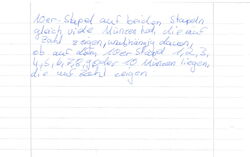 10er-Stapel auf beiden Stapeln
gleich viele Münzen hat, die auf
Zahl zeigen, unabhängig davon,
ob auf dem 10er Stapel 1, 2, 3,
4, 5, 6, 7, 8, 9 oder 10 Münzen liegen,
die auf Zahl zeigen